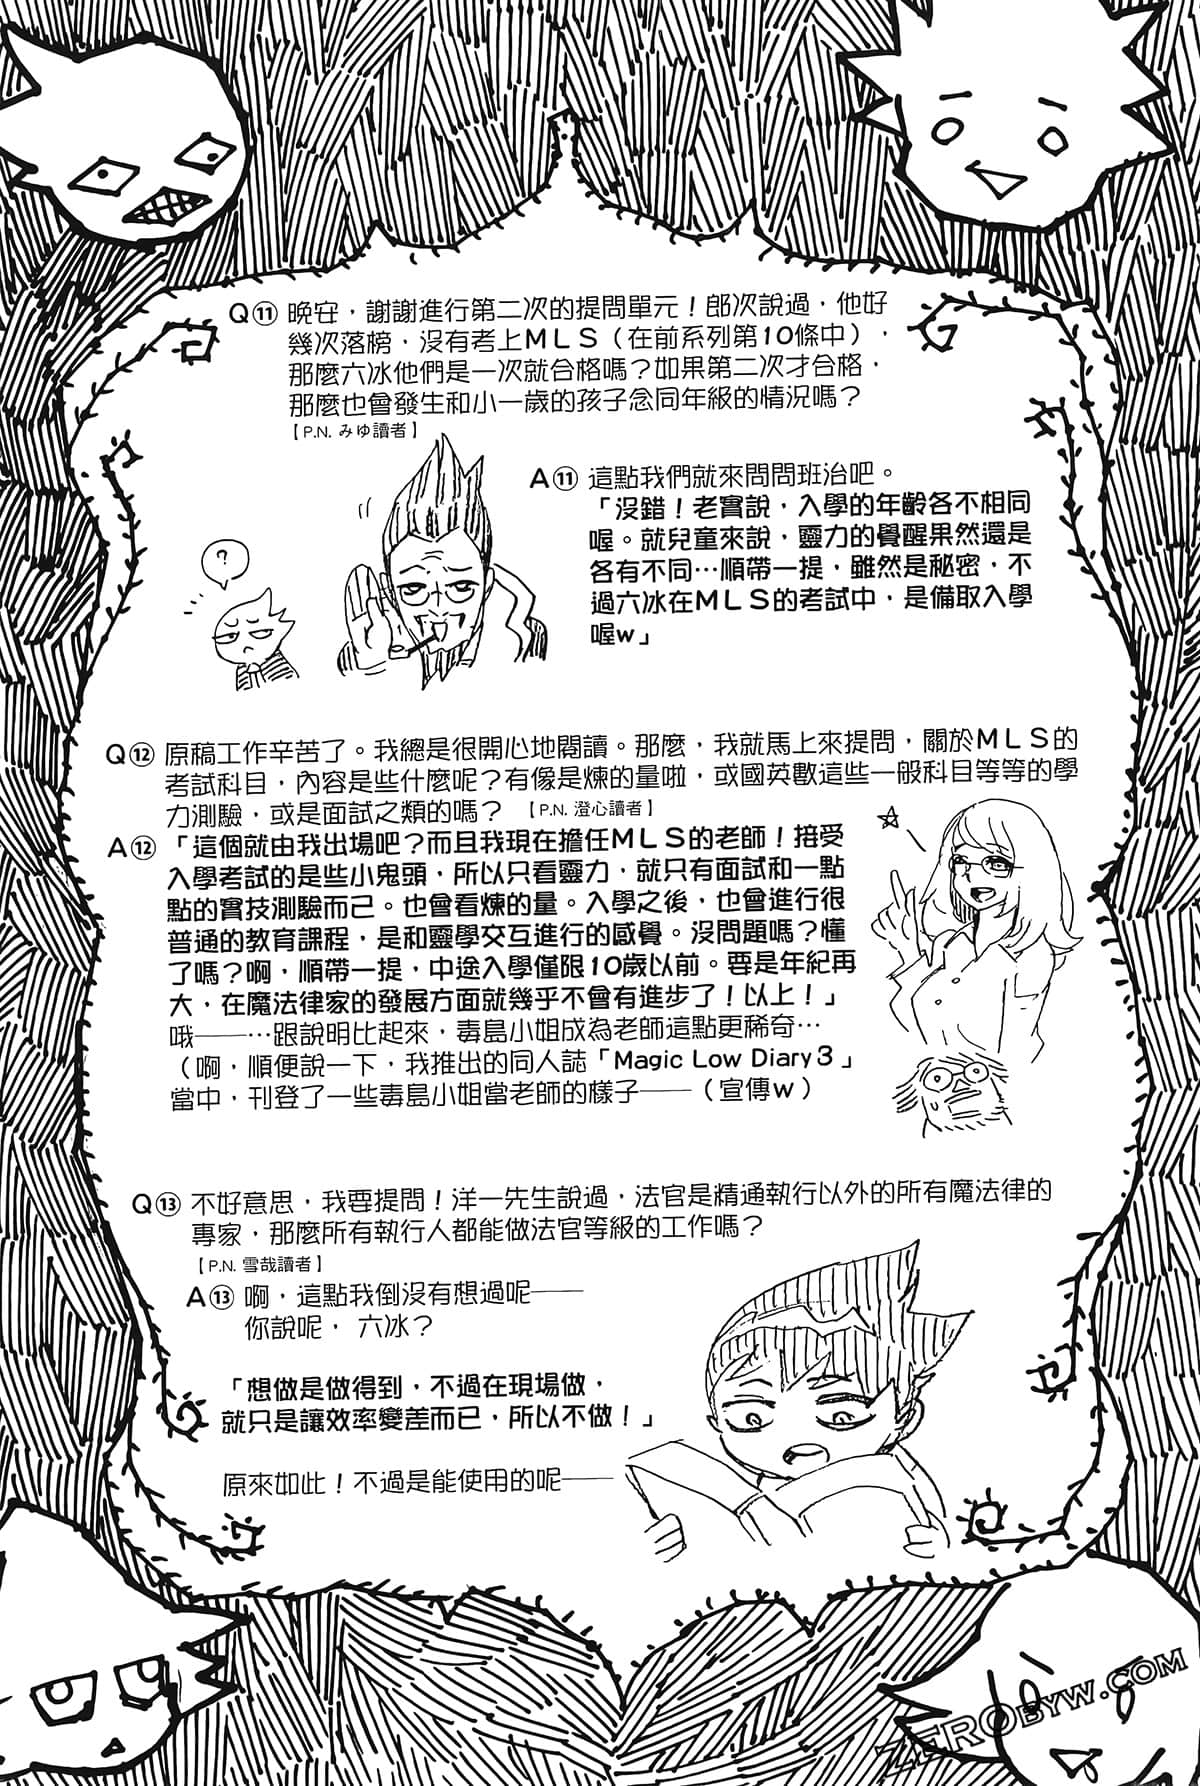 Q⑪ 晚安，謝謝進行第二次的提問單元！郎次說過，他好
幾次落榜，沒有考上MLS（在前系列第10條中），
那麼六冰他們是一次就合格嗎？如果第二次才合格，
那麼也會發生和小一歲的孩子念同年級的情況嗎？
【P.N. みゆ讀者】
A⑪ 這點我們就來問問班治吧。
「沒錯！老實說，入學的年齡各不相同
喔。就兒童來說，靈力的覺醒果然還是
各有不同…順帶一提，雖然是秘密，不
過六冰在MLS的考試中，是備取入學
喔w」
?
Q⑫ 原稿工作辛苦了。我總是很開心地閱讀。那麼，我就馬上來提問，關於MLS的
考試科目，內容是些什麼呢？有像是煉的量啦，或國英數這些一般科目等等的學
力測驗，或是面試之類的嗎？ 【P.N. 澄心讀者】
A⑫ 「這個就由我出場吧？而且我現在擔任MLS的老師！接受
入學考試的是些小鬼頭，所以只看靈力，就只有面試和一點
點的實技測驗而已。也會看煉的量。入學之後，也會進行很
普通的教育課程，是和靈學交互進行的感覺。沒問題嗎？懂
了嗎？啊，順帶一提，中途入學僅限10歲以前。要是年紀再
大，在魔法律家的發展方面就幾乎不會有進步了！以上！」
哦——…跟說明比起來，毒島小姐成為老師這點更稀奇…
（啊，順便說一下，我推出的同人誌「Magic Low Diary3」
當中，刊登了一些毒島小姐當老師的樣子——（宣傳w）
Q⑬ 不好意思，我要提問！洋一先生說過，法官是精通執行以外的所有魔法律的
專家，那麼所有執行人都能做法官等級的工作嗎？
【P.N. 雪哉讀者】
A⑬ 啊，這點我倒沒有想過呢——
你說呢， 六冰？
「想做是做得到，不過在現場做，
就只是讓效率變差而已，所以不做！」
原來如此！不過是能使用的呢——
ZEROBYW.COM